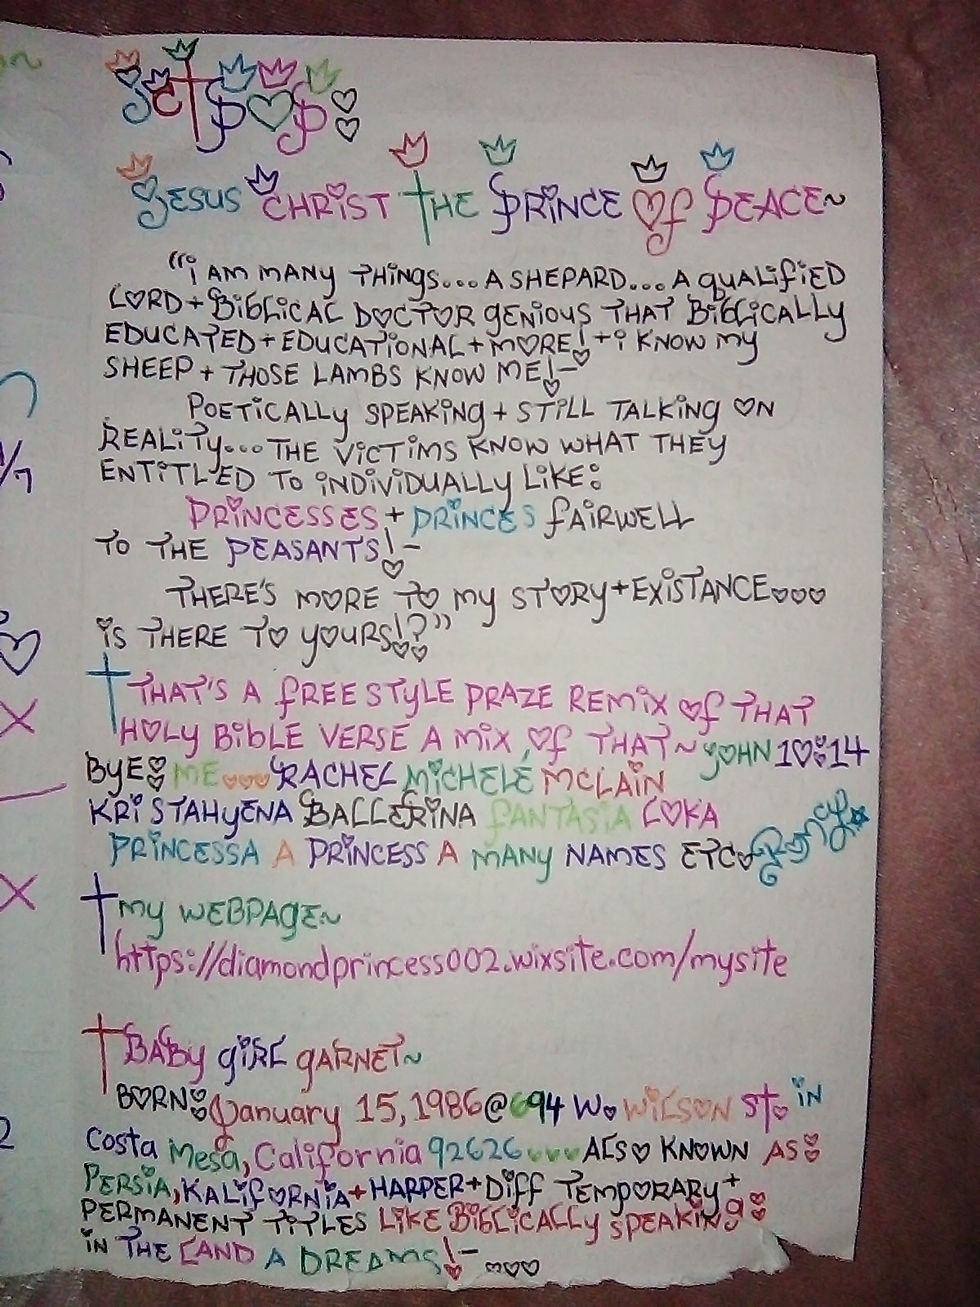 JCTPOP:
JESUS CHRIST THE PRINCE OF PEACE~
"I AM MANY THINGS...A SHEPARD...A QUALIFIED
LORD+BIBLICAL DOCTOR GENIOUS THAT BIBLICALLY
EDUCATED+EDUCATIONAL+MORE!+I KNOW MY
SHEEP+THOSE LAMBS KNOW ME!-
POETICALLY SPEAKING+STILL TALKING ON
REALITY...THE VICTIMS KNOW WHAT THEY
ENTITLED TO INDIVIDUALLY LIKE:
PRINCESSES+PRINCES FAIRWELL
TO THE PEASANTS!-
THERE'S MORE TO MY STORY+EXISTANCE...
IS THERE TO YOURS!?"
THAT'S A FREESTYLE PRAZE REMIX OF THAT
HOLY BIBLE VERSE A MIX OF THAT~JOHN 10:14
BYE: ME...RACHEL MICHELE MCLAIN
KRISTAHYENA BALLERINA FANTASIA LOKA
PRINCESSA A PRINCESS A MANY NAMES ETC.
MY WEBPAGE~
https://diamondprincess002.wixsite.com/mysite
BABY GIRL GARNET~
BORN: January 15, 1986@694 W. WILSON St. IN
Costa Mesa, California 92626...ALSO KNOWN AS:
PERSIA, KALIFORNIA+HARPER+DIFF TEMPORARY+
PERMANENT TITLES LIKE BIBLICALLY SPEAKING:
IN THE LAND A DREAMS!-...